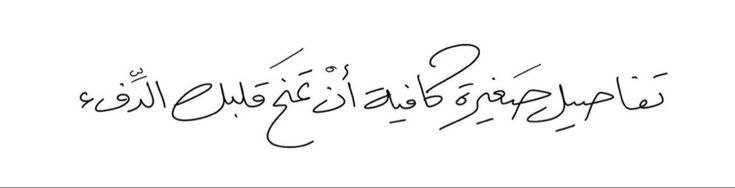 تفاصيل صَغيرة كافية أنْ تمنحَ قلبك الدِّفء